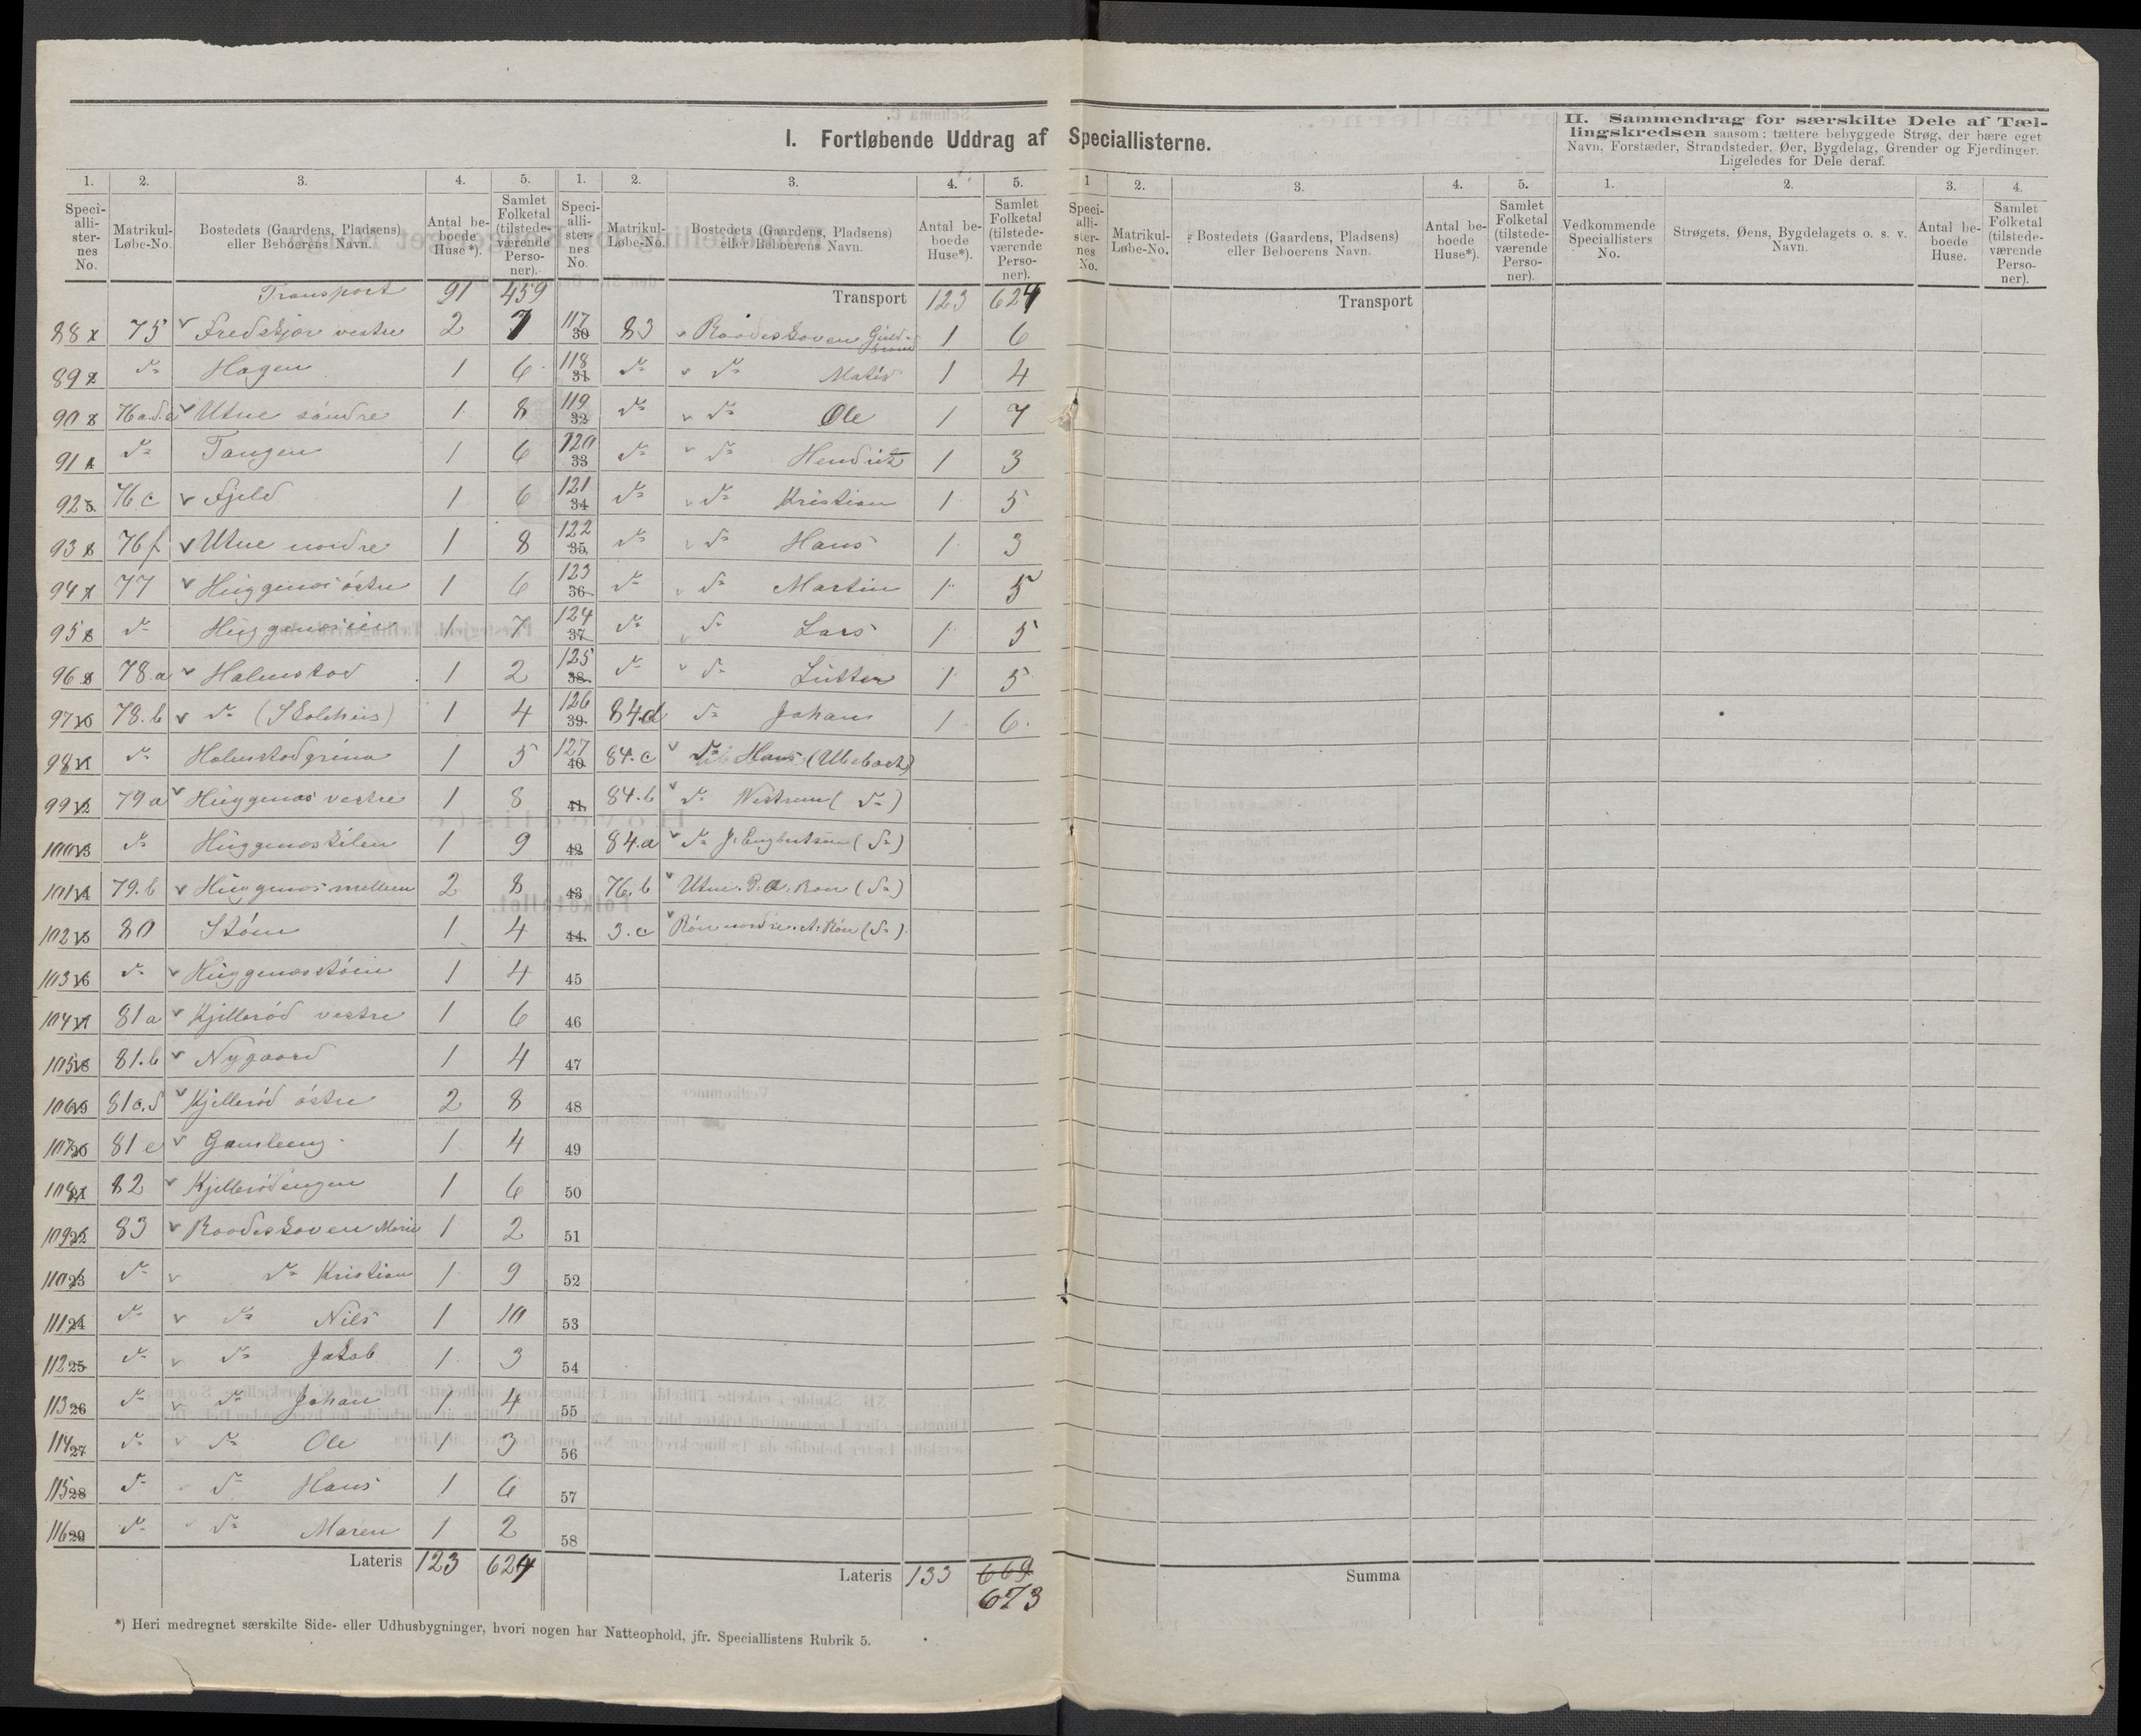 I. Fortløbende Uddrag af Speciallisterne.
II. Sammendrag for særskilte Dele af Tæl-
lingskredsen saasom: tættere bebyggede Strøg, der bære eget
Navn, Forstæder, Strandsteder, Øer, Bygdelag, Grender og Fjerdinger.
Ligeledes for Dele deraf.
1. 2. 3. 4. 5.
Speci-
alli-
ster-
nes
No.
Matrikul-
Løbe-No.
Bostedets (Gaardens, Pladsens)
eller Beboerens Navn.
Antal be-
boede
Huse*).
Samlet
Folketal
(tilstede-
værende
Perso-
ner).
Transport 91 459
88 75 v Fredskjær vestre 2 7
89 do Hagen 1 6
90 v Utne søndre 1 8
91 do Tangen 1 6
92 5. 76 c v Fjeld 1 6
93 76 f v Utne nordre 1 8
94 77 v Huggenæs østre 1 6
95 8 do 1 7
96 78.a v Halmstad 1 2
97 10 78.b v do (Skolehus) 1 4
98 11 do 1 5
99 12 79 a v Huggenæs vestre 1 8
100 13 do Huggenæskilen 1 9
101 14 79.b v Huggenæs mellem 2 8
102 15 80 Støen 1 4
103 16 do v Huggenæsstøen 1 4
104 17 81 a v Kjillerød vestre 1 6
105 18 81.b v Nygaard 1 4
106 19 81 c.d v Kjillerød østre 2 8
107 20 81 e v 1 4
108 21 82 v Kjillerødengen 1 6
109 22 83 v Raadeskoven Marie 1 2
110 23 do v do Kristian 1 9
111 24 do v do Nils 1 10
112 25 do v do Jakob 1 3
113 26 do v do Johan 1 4
114 27 do v do Ole 1 3
115 28 do do Hans 1 6
116 29 do do Maren 1 2
Lateris 123 624
1. 2. 3. 4. 5.
Speci-
alli-
ster-
nes
No.
Matrikul-
Løbe-No.
Bostedets (Gaardens, Pladsens)
eller Beboerens Navn.
Antal be-
boede
Huse*).
Samlet
Folketal
(tilstede-
værende
Perso-
ner).
Transport 123 624
117 30 83 v Raadeskoven Guld-
brand 1 6
118 31 do v do 1 4
119 32 do v do Ole 1 7
120 33 do v do Hendrik 1 3
121 34 do v do Kristian 1 5
122 35. do v do Hans 1 3
123 36 do v do Martin 1 5
124 37 do v do Lars 1 5
125 38. do v do 1 5
126 39. 84.d do Johan 1 6.
127 40 84.c v do Hans (Ubeboet)
41. 84.b v do (do)
42 84.a v do J. Engbretsen (do)
43 76.b v Utne (do)
44. 3.c v Røn nordre. A. Røn (do).
45
46
47
48
49
50
51
52
53
54
55
56
57
58
Lateris 133 669
673
*) Heri medregnet særskilte Side- eller Udhusbygninger, hvori nogen har Natteophold, jfr. Speciallistens Rubrik 5.
1 2. 3. 4. 5.
Speci-
alli-
ster-
nes
No.
Matrikul-
Løbe-No.
Bostedets (Gaardens, Pladsens)
eller Beboerens Navn.
Antal be-
boede
Huse*).
Samlet
Folketal
(tilstede-
værende
Perso-
ner).
Transport
Summa
1. 2. 3. 4.
Vedkommende
Speciallisters
No.
Strøgets, Øens, Bygdelagets o. s. v.
Navn.
Antal be-
boede
Huse.
Samlet
Folketal
(tilstede-
værende
Perso-
ner).